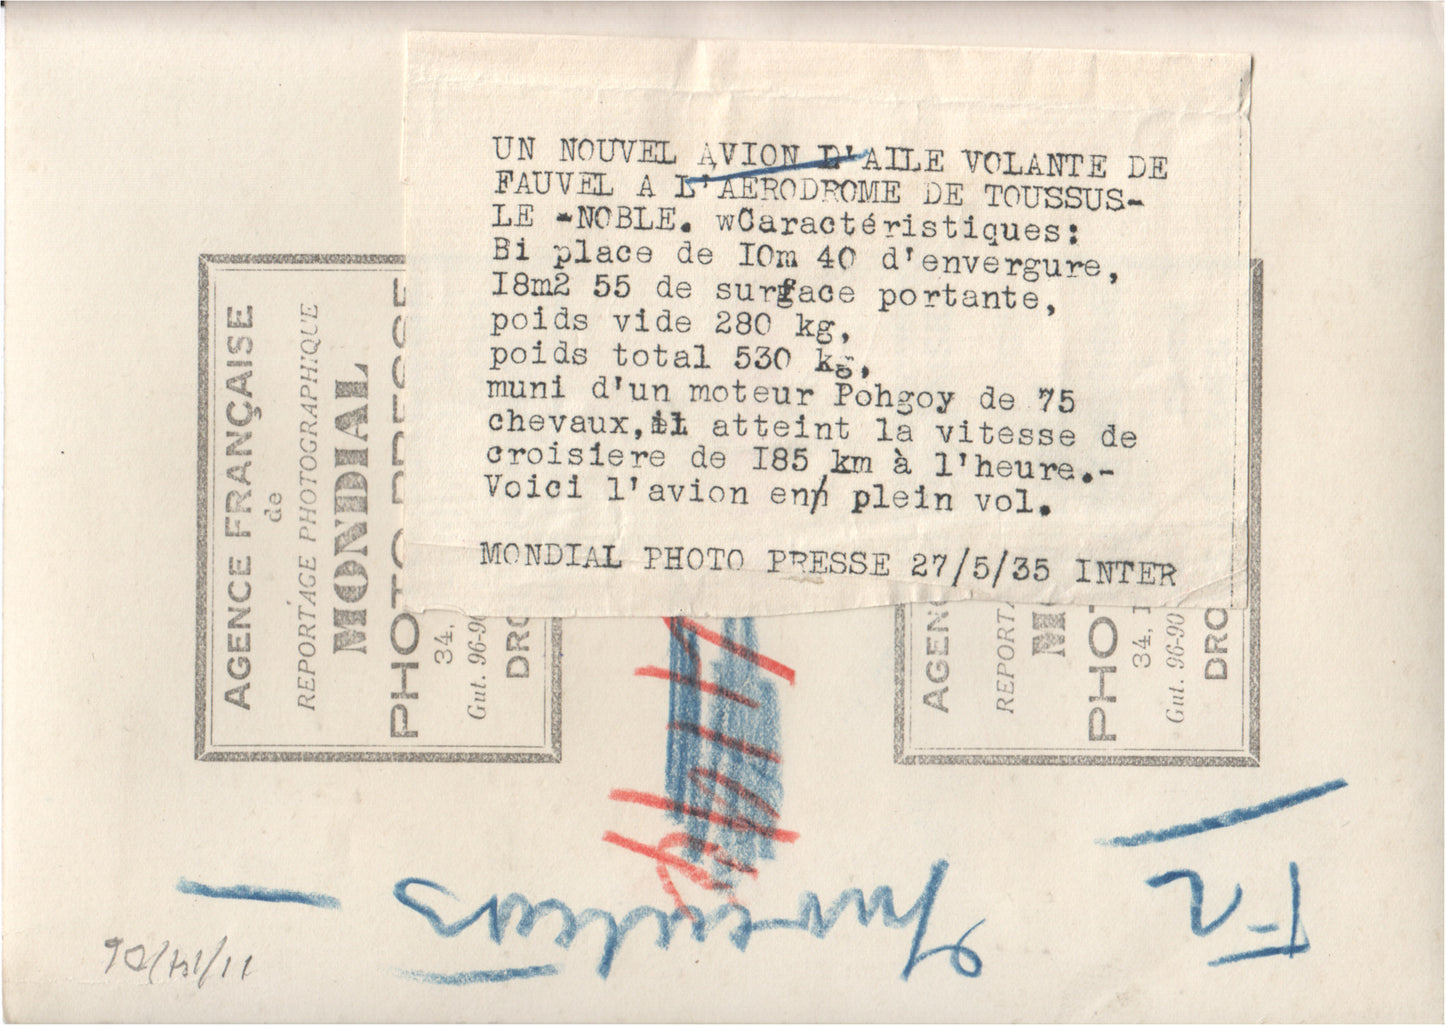 UN NOUVEL AVION D'AILE VOLANTE DE
FAUVEL A L'AERODROME DE TOUSSUS-
LE -NOBLE. wCaractéristiques:
Bi place de I0m 40 d'envergure,
I8m2 55 de surface portante,
poids vide 280 kg,
poids total 530 kg,
muni d'un moteur Pohgoy de 75
chevaux,il atteint la vitesse de
croisiere de I85 km à l'heure.-
Voici l'avion en plein vol.
MONDIAL PHOTO PRESSE 27/5/35 INTER
AGENCE FRANÇAISE
de
REPORTAGE PHOTOGRAPHIQUE
MONDIAL
PHOTO PRESSE
34,
Gut. 96-90
DRO
AGEN
REPORTA
MO
PHOT
34, 
Gut. 96-90
DRO
Inventions